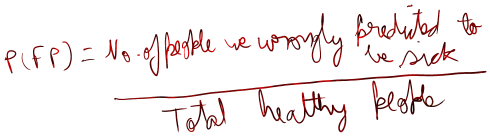 P(FP) = No. of people we wrongly predicted to
be sick
Total healthy people